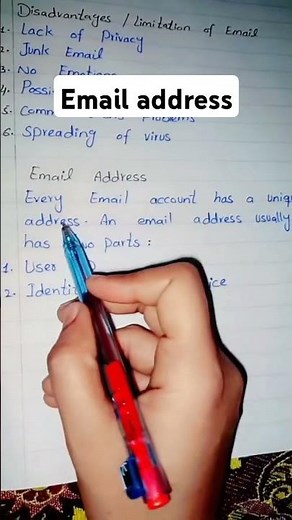 Disadvantages / Limitation of Email
1. Lack of Privacy
2. Junk Email
3. No Emotions
4. Possi
Email address
5. Comm Problems
6. Spreading of virus
Email Address
Every Email account has a uniq
address. An email address usually
has two parts :
1. User
2. Identi